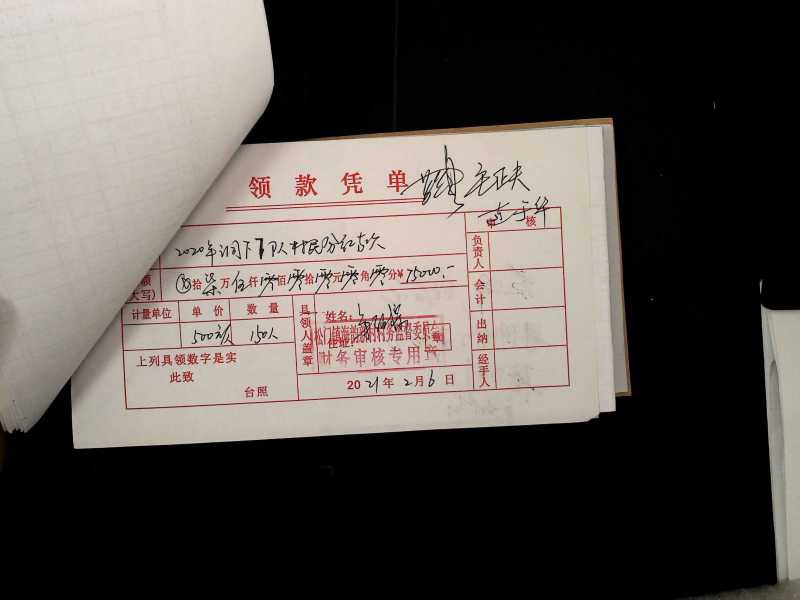 领款凭单
审核
2020年 下 队村民分红款
额
大写)
拾柒万伍仟零佰零拾零元零角零分¥75000.—
计量单位 单价 数量
500元 150人
上列具领数字是实
此致
台照
具领人盖章
姓名:
住址:
章
松门镇 村村务监督委员会
财务审核专用章
2021年2月6日
负责人
会计
出纳
经手人